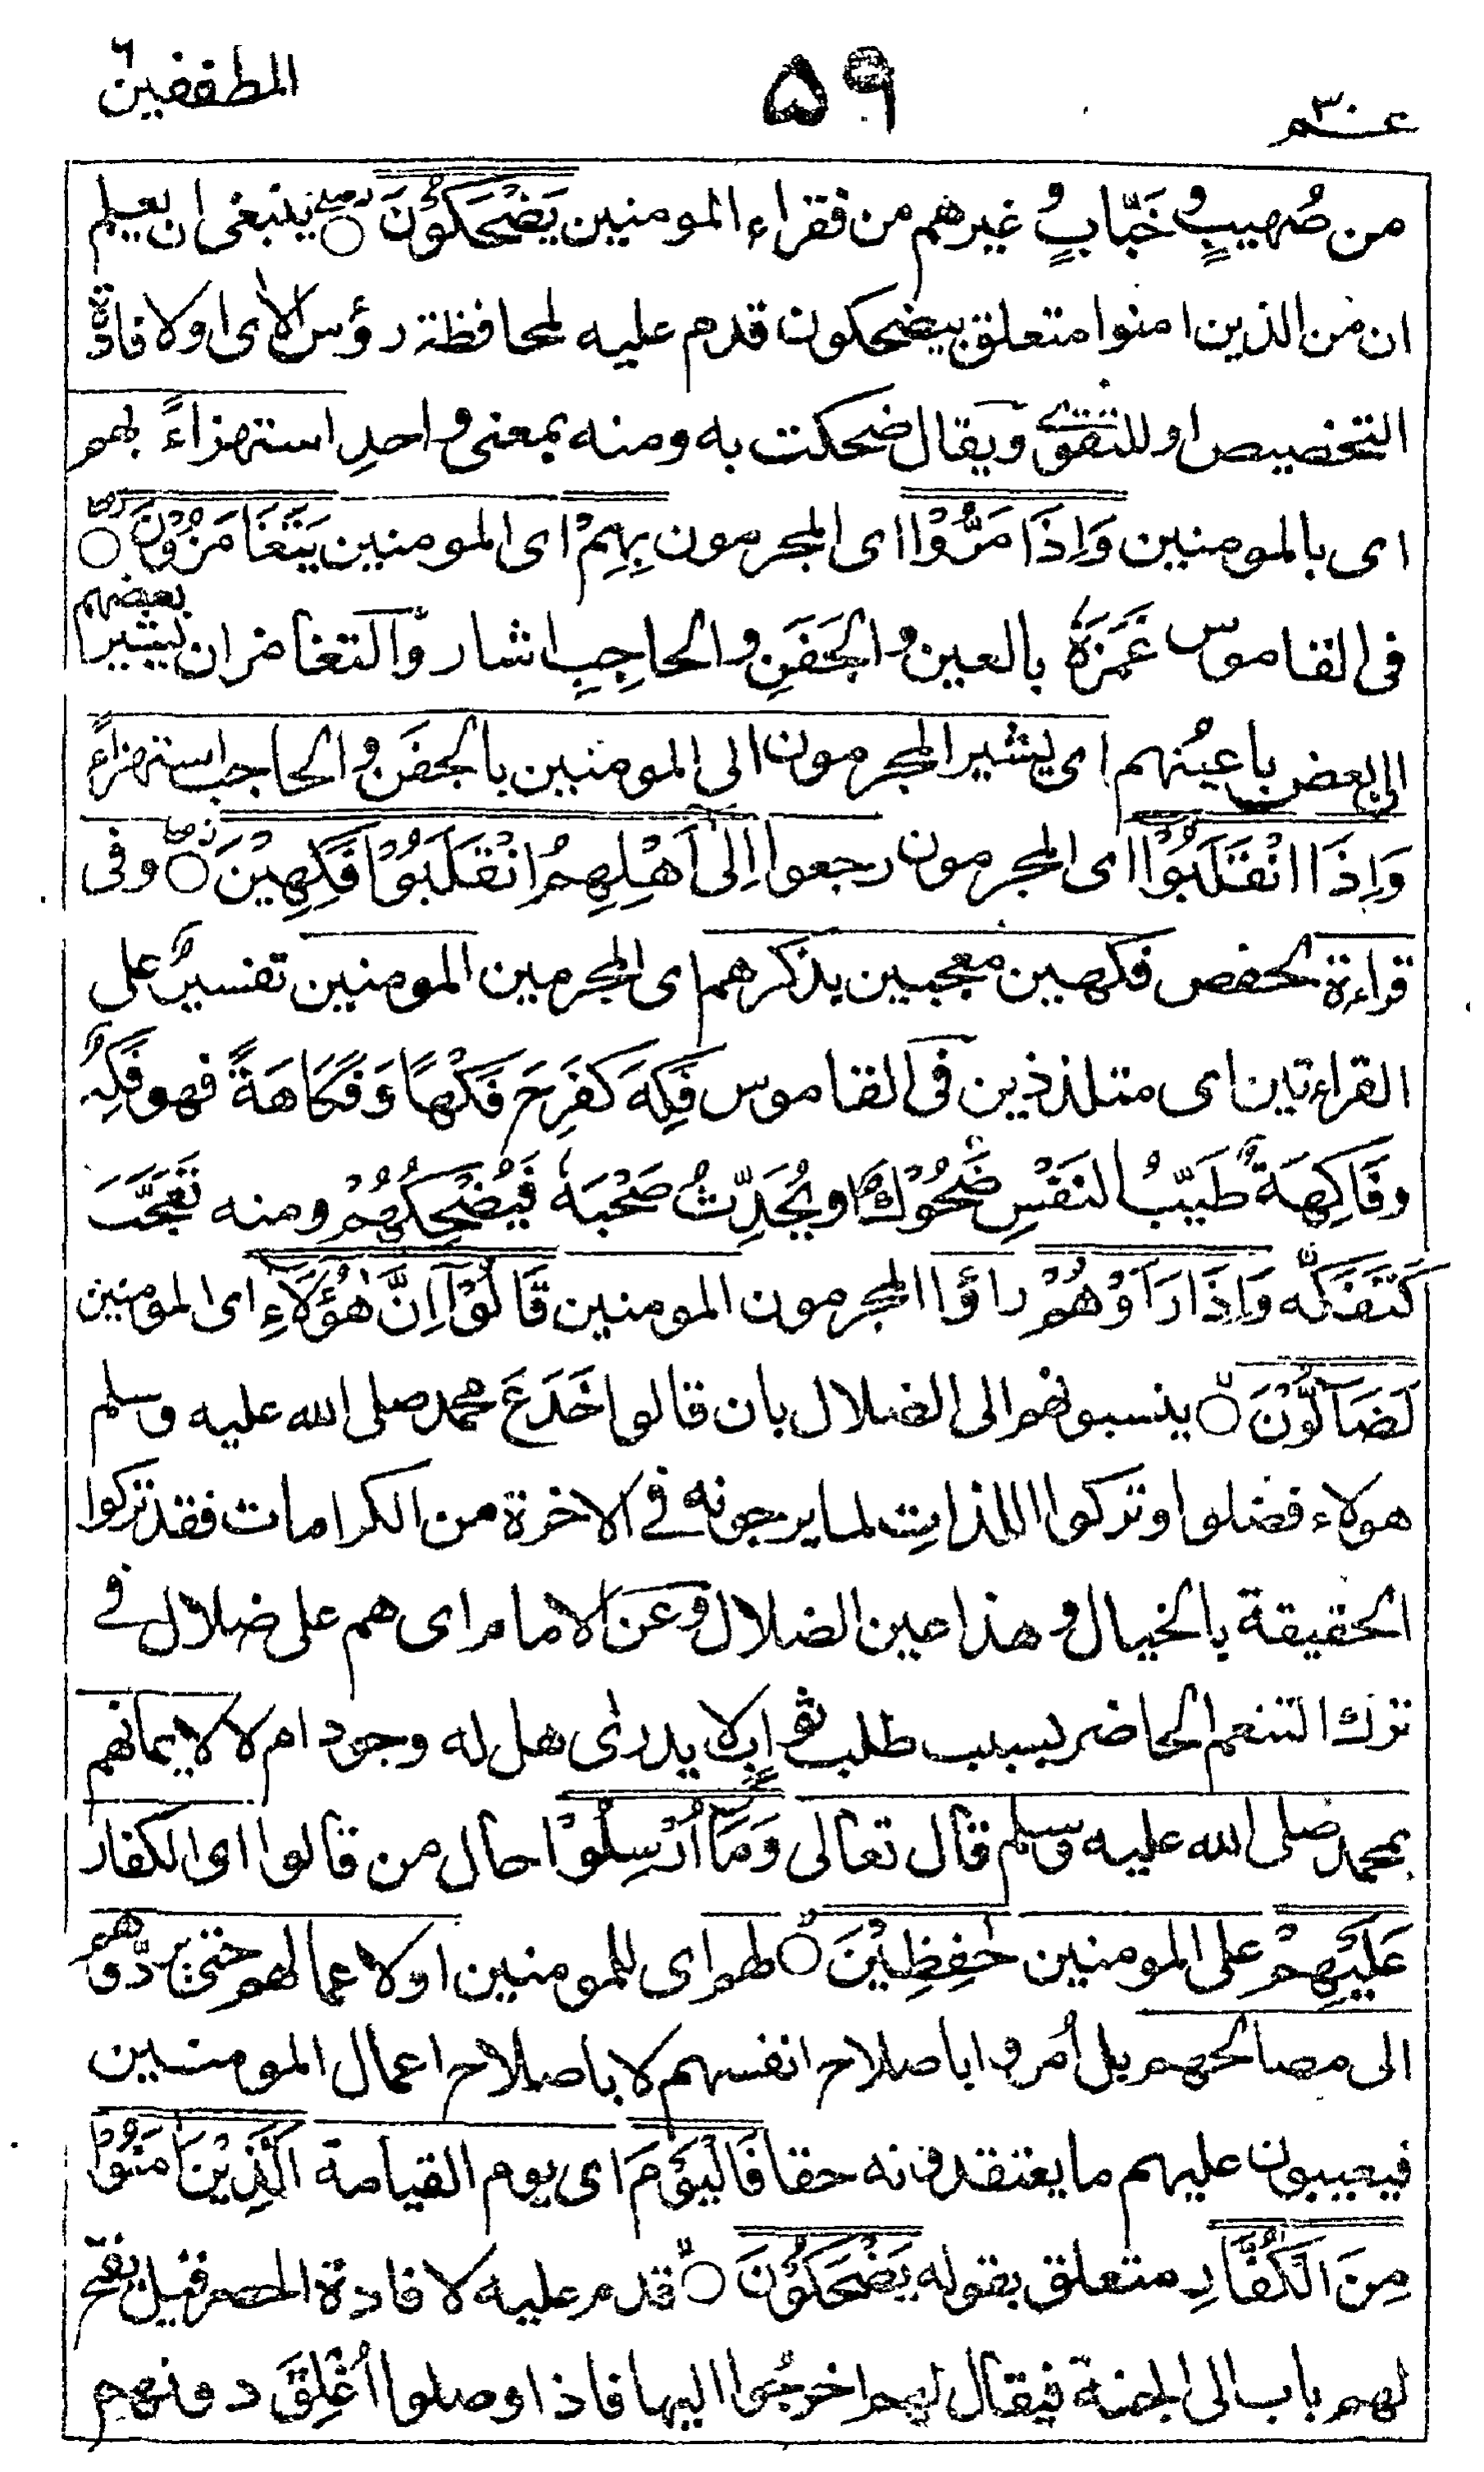 عـ۳۰ـم ۵۹ المطففين
من صُهيبٍ وخَبّابٍ وغيرهم من فقراء المومنين يَضْحَكُوْنَ ○ ينبغى ان يعلم
ان من الذين امنوا متعلق بيضحكون قدم عليه لمحافظة رؤس الاٰى او لافادة
التخصيص او للتقوى ويقال ضحكت به ومنه بمعنى واحدِ استهزاءً بهم
اى بالمومنين وَاِذَا مَرُّوْا اى المجرمون بِهِمْ اى المومنين يَتَغَامَزُوْنَ ○
فى القاموس غَمَزَهٗ بالعين والجَفَنِ والحاجِبِ اشار والتغامز ان يشير بعضهم
الى بعض باعيُنهم اى يشير المجرمون الى المومنين بالجفَن والحاجب استهزاءً
وَاِذَا انْقَلَبُوْا اى المجرمون رجعوا اِلٰٓى اَهْلِهِمُ انْقَلَبُوْا فَكِهِيْنَ ○ وفى
قراءة الحفص فكهين معجبين بذكرهم اى المجرمين المومنين تفسيرٌ على
القراءتين اى متلذذين فى القاموس فَكِهَ كفَرِحَ فَكْهًا وَفَكَاهَةً فهو فَكِهٌ
وفَاكِهَةٌ طَيّبُ النَفْسِ ضَحُوْكٌ او يُحَدِّثُ صَحْبَهٗ فَيُضْحِكُهُمْ ومنه تَعَجَّبَ
كَتَفَكَّهَ وَاِذَا رَاَوْهُمْ راؤا المجرمون المومنين قَالُوْٓا اِنَّ هٰٓؤُلَآءِ اى المومنين
لَضَآلُّوْنَ ○ ينسبونهم الى الضلال بان قالوا خَدَعَ محمد صلى الله عليه وسلم
هولاء فضلوا وتركوا اللذاتِ لما يرجونه في الاخرة من الكرامات فقد تركوا
الحقيقة بالخيال وهذا عين الضلال وعن الامام اى هم على ضلال في
ترك التنعم الحاضر بسبب طلب ثوابٍ لا يدرى هل له وجود ام لا لايمانهم
بمحمد صلى الله عليه وسلم قال تعالى وَمَآ اُرْسِلُوْا حال من قالوا اى الكفار
عَلَيْهِمْ على المومنين حٰفِظِيْنَ ○ لهم اى للمومنين او لاعمالهم حتى يردّوهم
الى مصالحهم بل اُمروا باصلاح انفسهم لا باصلاح اعمال المومنين
فيعيبون عليهم ما يعتقدونه حقا فَالْيَوْمَ اى يوم القيامة الَّذِيْنَ اٰمَنُوْا
مِنَ الْكُفَّارِ متعلق بقوله يَضْحَكُوْنَ ○ قدم عليه لافادة الحصر فقيل يفتح
لهم باب الى الجنة فيقال لهم اخرجُوا اليها فاذا وصلوا اُغْلِقَ دونهم